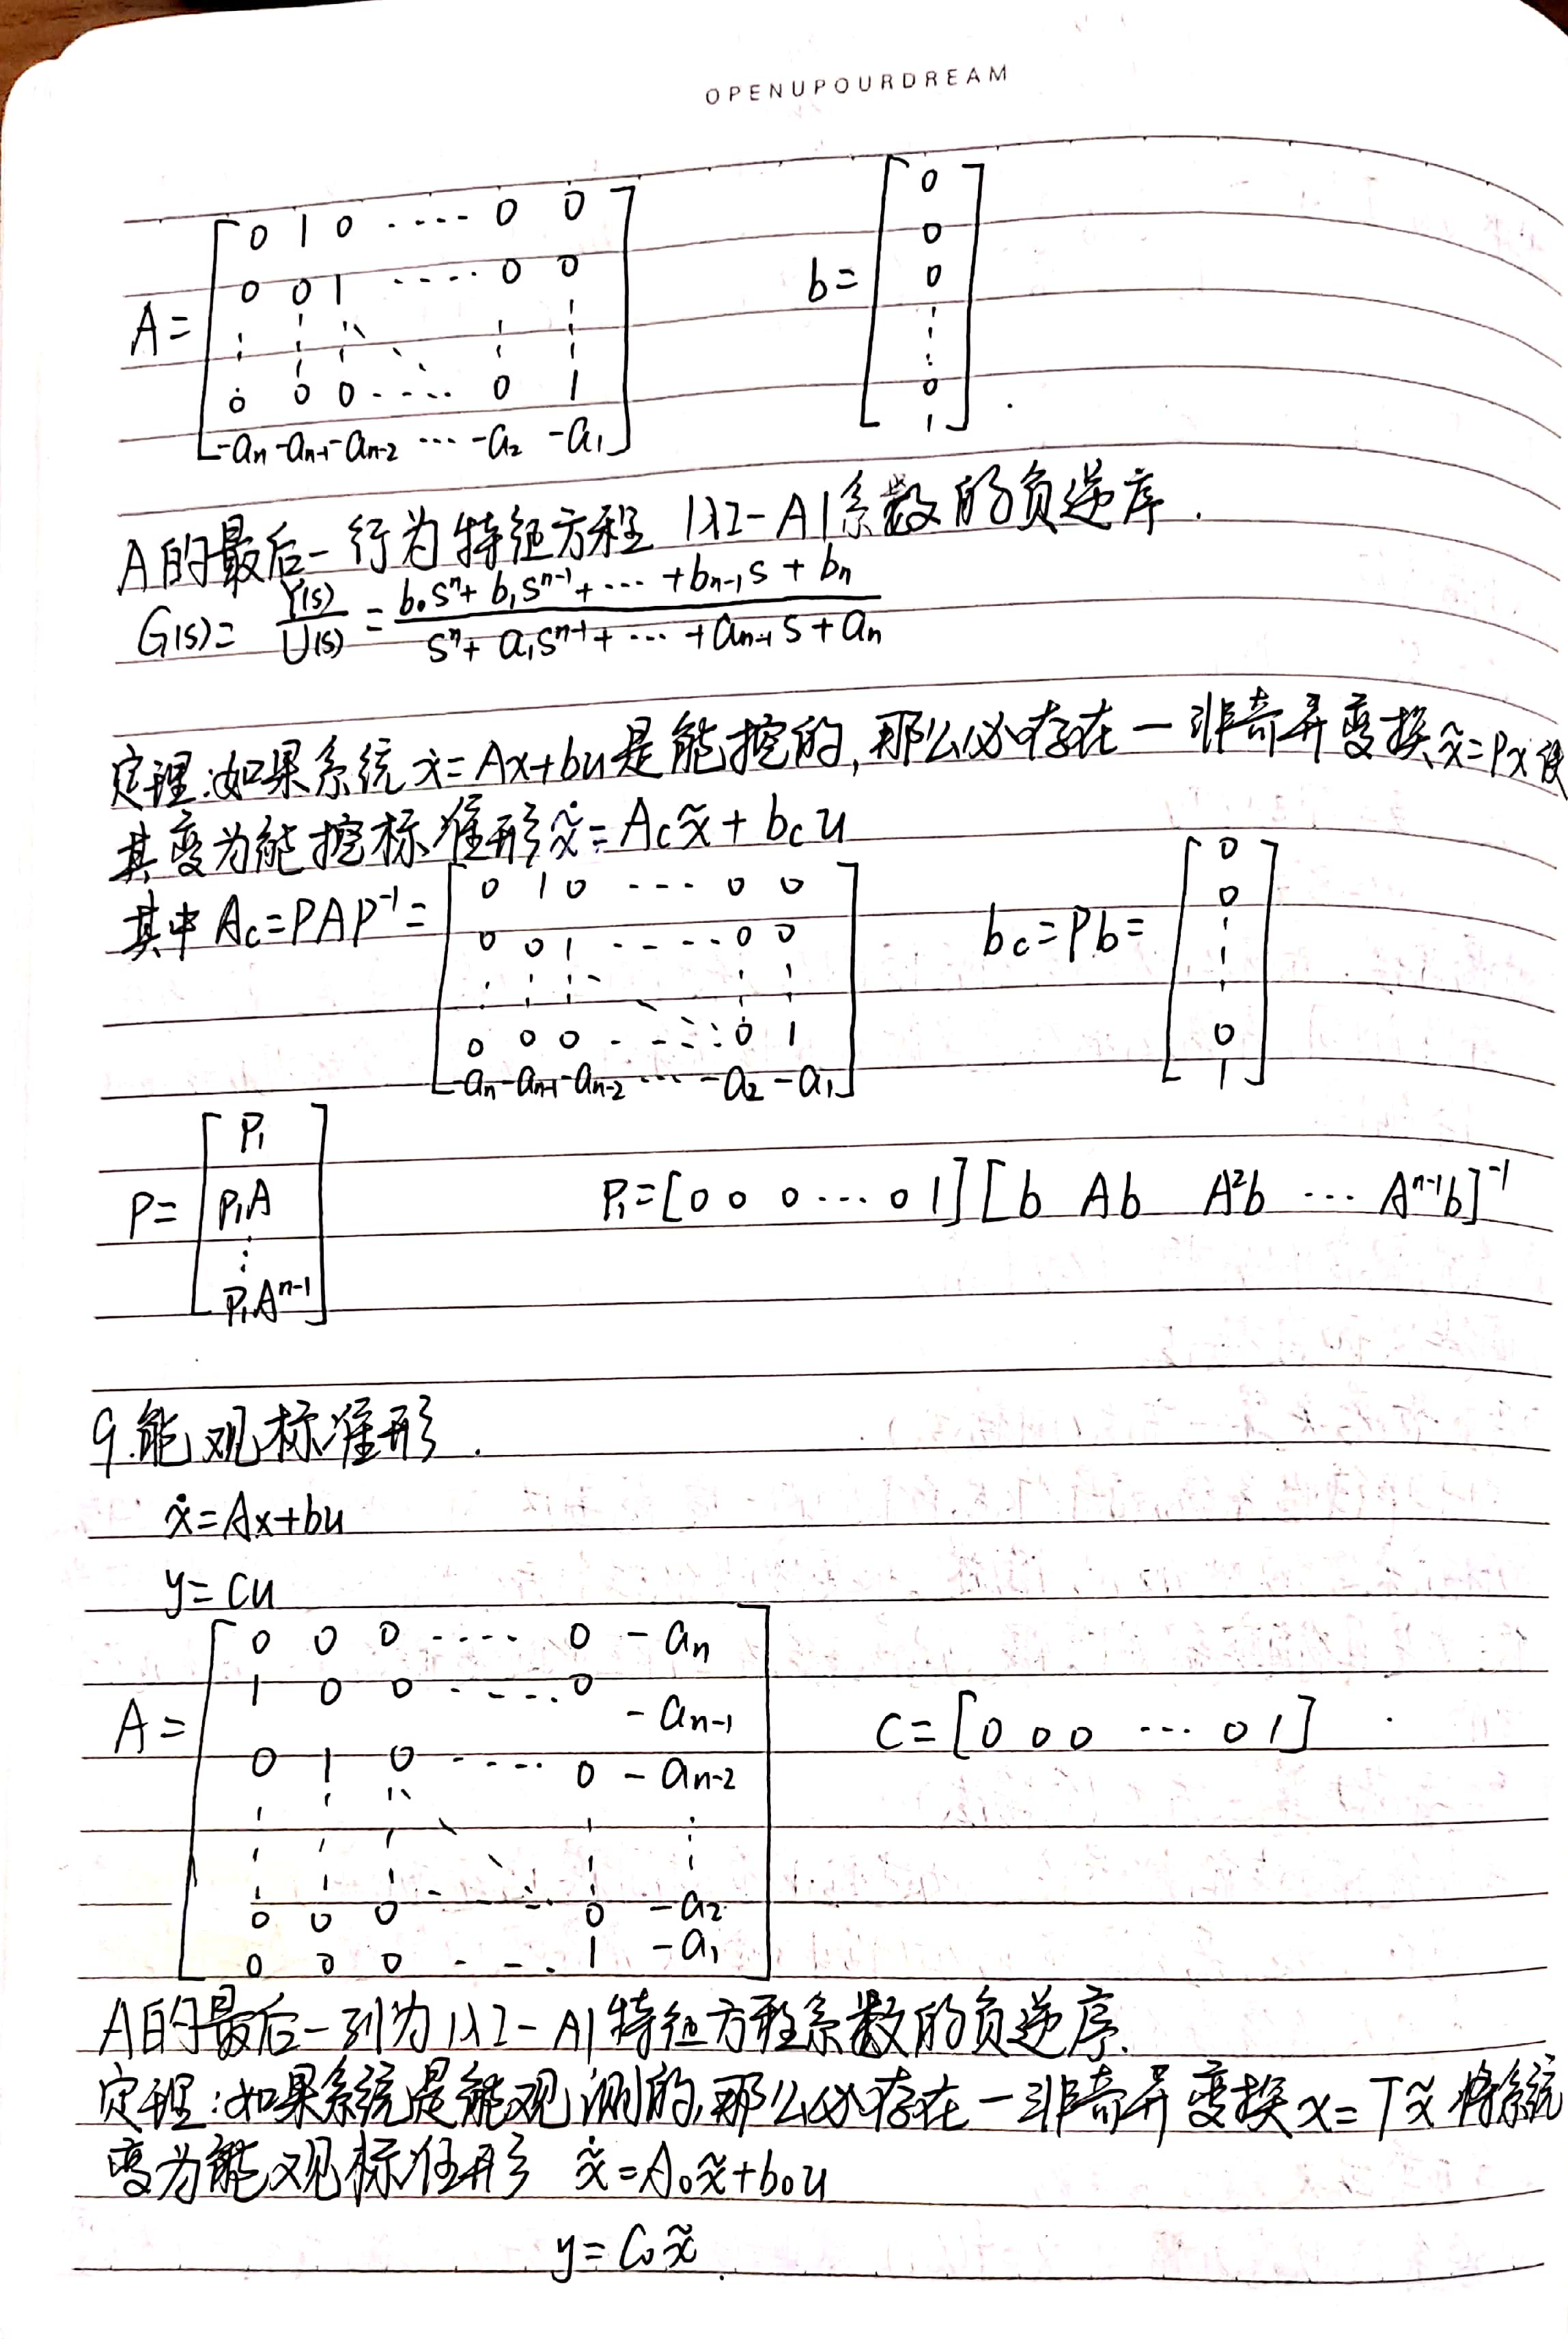 OPENUPOURDREAM
A = [0 1 0 ···· 0 0; 0 0 1 ···· 0 0; ⋮ ⋮ ⋮ ⋱ ⋮ ⋮; 0 0 0 ···· 0 1; -aₙ -aₙ₋₁ -aₙ₋₂ ··· -a₂ -a₁] b = [0; 0; 0; ⋮; 0; 1]
A的最后一行为特征方程 |λI-A|系数的负逆序.
G(s) = Y(s)/U(s) = (b₀sⁿ + b₁sⁿ⁻¹ + ··· + bₙ₋₁s + bₙ)/(sⁿ + a₁sⁿ⁻¹ + ··· + aₙ₋₁s + aₙ)
定理:如果系统ẋ=Ax+bu是能控的,那么必存在一非奇异变换x̃=Px使
其变为能控标准形 x̃̇=A_c x̃+b_c u
其中 A_c=PAP⁻¹= [0 1 0 ··· 0 0; 0 0 1 ···· 0 0; ⋮ ⋮ ⋮ ⋱ ⋮ ⋮; 0 0 0 ··· 0 1; -aₙ -aₙ₋₁ -aₙ₋₂ ··· -a₂ -a₁] b_c=Pb= [0; 0; ⋮; 0; 1]
P= [P₁; P₁A; ⋮; P₁Aⁿ⁻¹] P₁=[0 0 0 ··· 0 1][b Ab A²b ··· Aⁿ⁻¹b]⁻¹
9.能观标准形.
ẋ=Ax+bu
y=Cu
A= [0 0 0 ···· 0 -aₙ; 1 0 0 ···· 0 -aₙ₋₁; 0 1 0 ···· 0 -aₙ₋₂; ⋮ ⋮ ⋮ ⋱ ⋮ ⋮; 0 0 0 ··· 0 -a₂; 0 0 0 ··· 1 -a₁] C=[0 0 0 ··· 0 1]
A的最后一列为|λI-A|特征方程系数的负逆序.
定理:如果系统是能观测的,那么必存在一非奇异变换x=Tx̃将系统
变为能观标准形 x̃̇=A₀x̃+b₀u
y=C₀x̃